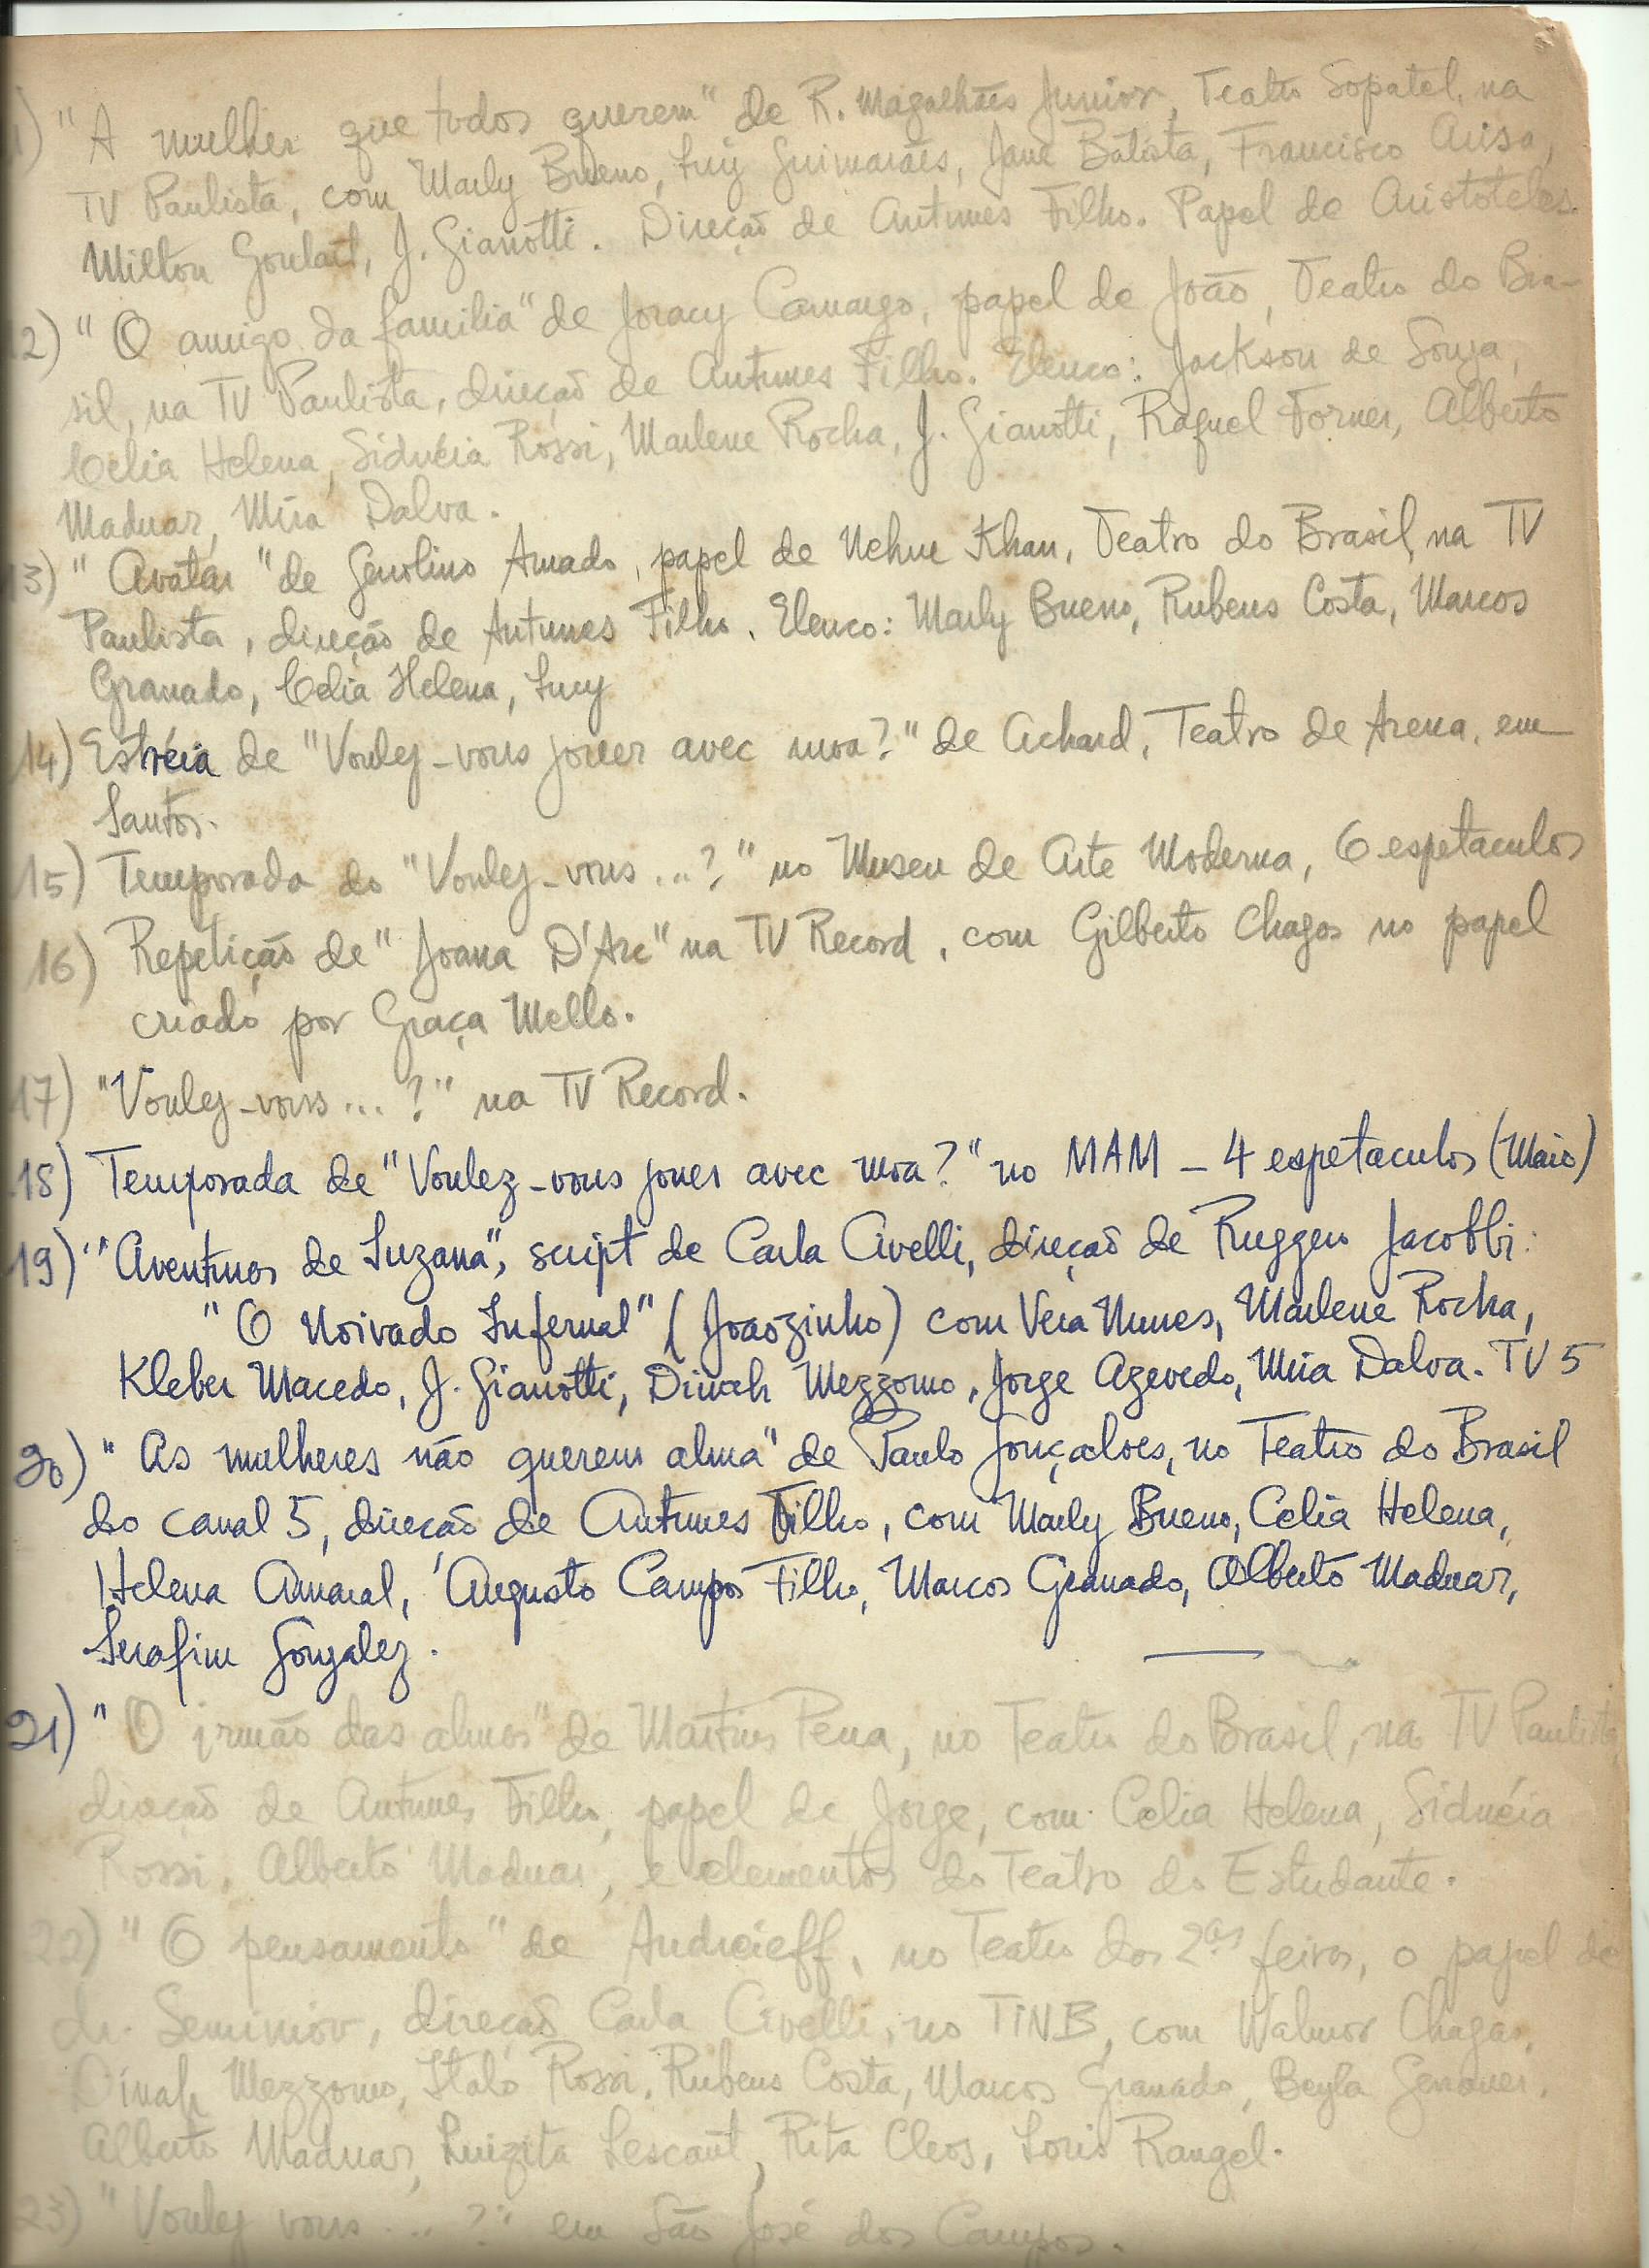 1) "A mulher que todos querem" de R. Magalhães Junior, Teatro Sopatel, na
TV Paulista, com Marly Bueno, Luiz Guimarães, Jane Batista, Francisco
Milton Goulart, J. Gianotti. Direção de Antunes Filho. Papel de Aristoteles.
12) "O amigo da familia" de Joracy Camargo, papel de João, Teatro do Bra-
sil, na TV Paulista, direção de Antunes Filho. Elenco: Jackson de Souza,
Celia Helena, Sidnéia Rossi, Marlene Rocha, J. Gianotti, Rafuel Forner, Alberto
Maduar, Míra Dalva.
13) "Avatar" de Genolino Amado, papel de Khan, Teatro do Brasil, na TV
Paulista, direção de Antunes Filho. Elenco: Marly Bueno, Rubens Costa, Marcos
Granado, Celia Helena, Lucy
14) Estréia de "Vouley-vous jouer avec moa?" de Achard, Teatro de Arena, em
Santos.
15) Temporada do "Vouley-vous...?" no Museu de Arte Moderna, 6 espetaculos
16) Repetição de "Joana D'Arc" na TV Record, com Gilberto Chagas no papel
criado por Graça Mello.
17) "Vouley-vous...?" na TV Record.
18) Temporada de "Voulez-vous jouer avec moa?" no MAM - 4 espetaculos (Maio)
19) "Aventuras de Suzana", script de Carla Civelli, direção de Ruggero Jacobbi:
"O Noivado Infernal" (Joãozinho) com Vera Nunes, Marlene Rocha,
Kleber Macedo, J. Gianotti, Dinah Mezzomo, Jorge Azevedo, Míra Dalva. TV 5
20) "As mulheres não querem alma" de Paulo Gonçalves, no Teatro do Brasil
do canal 5, direção de Antunes Filho, com Marly Bueno, Celia Helena,
Helena Amaral, Augusto Campos Filho, Marcos Granado, Alberto Maduar,
Serafim Gonzalez.
21) "O irmão das almas" de Martins Pena, no Teatro do Brasil, na TV Paulista,
direção de Antunes Filho, papel de Jorge, com Celia Helena, Sidnéia
Rossi, Alberto Maduar, e elementos do Teatro do Estudante.
22) "O pensamento" de Andreieff, no Teatro das 2as feiras, o papel de
dr. Seminiov, direção Carla Civelli, no TINB, com Walmor Chagas,
Dinah Mezzomo, Italo Rossi, Rubens Costa, Marcos Granado, Beyla Genauer,
Alberto Maduar, Luizita Lescaut, Rita Cleos, Loris Rangel.
23) "Vouley vous...?" em São José dos Campos.